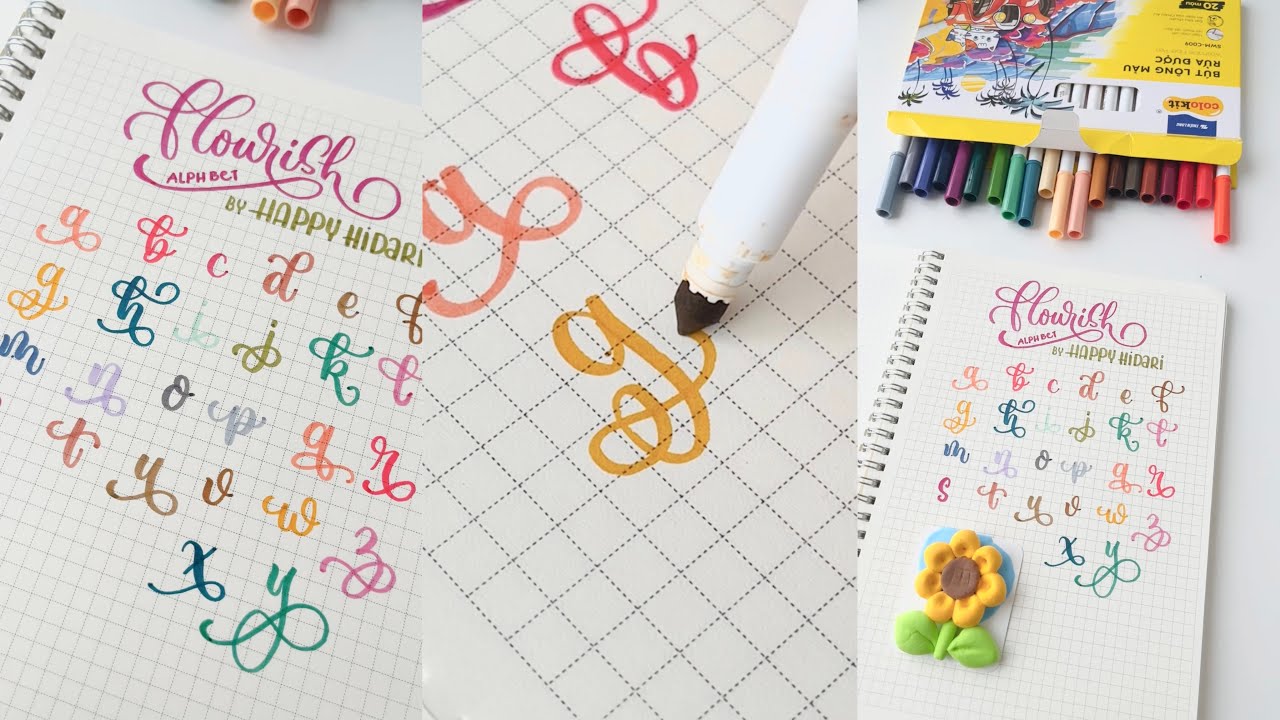 flourish
ALPHBET
BY HAPPY HiDARi
a b c d e f
g h i j k l
m n o p q r
t u v w z
x y
b
a
g
20 màu
SWM-C009
BÚT LÔNG MÀU
RỬA ĐƯỢC
colokit
flourish
ALPHBET
BY HAPPY HiDARi
a b c d e f
g h i j k l
m n o p q r
s t u v w z
x y